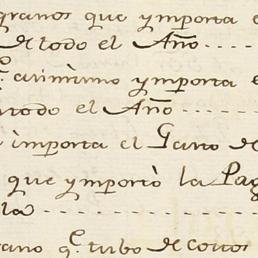 granos que ymporta e
de todo el Año....
q.e asimismo ymporta e
todo el Año....
importa el Gasto de
que ymportò la Pag
la..........
rano q.e tubo de costos